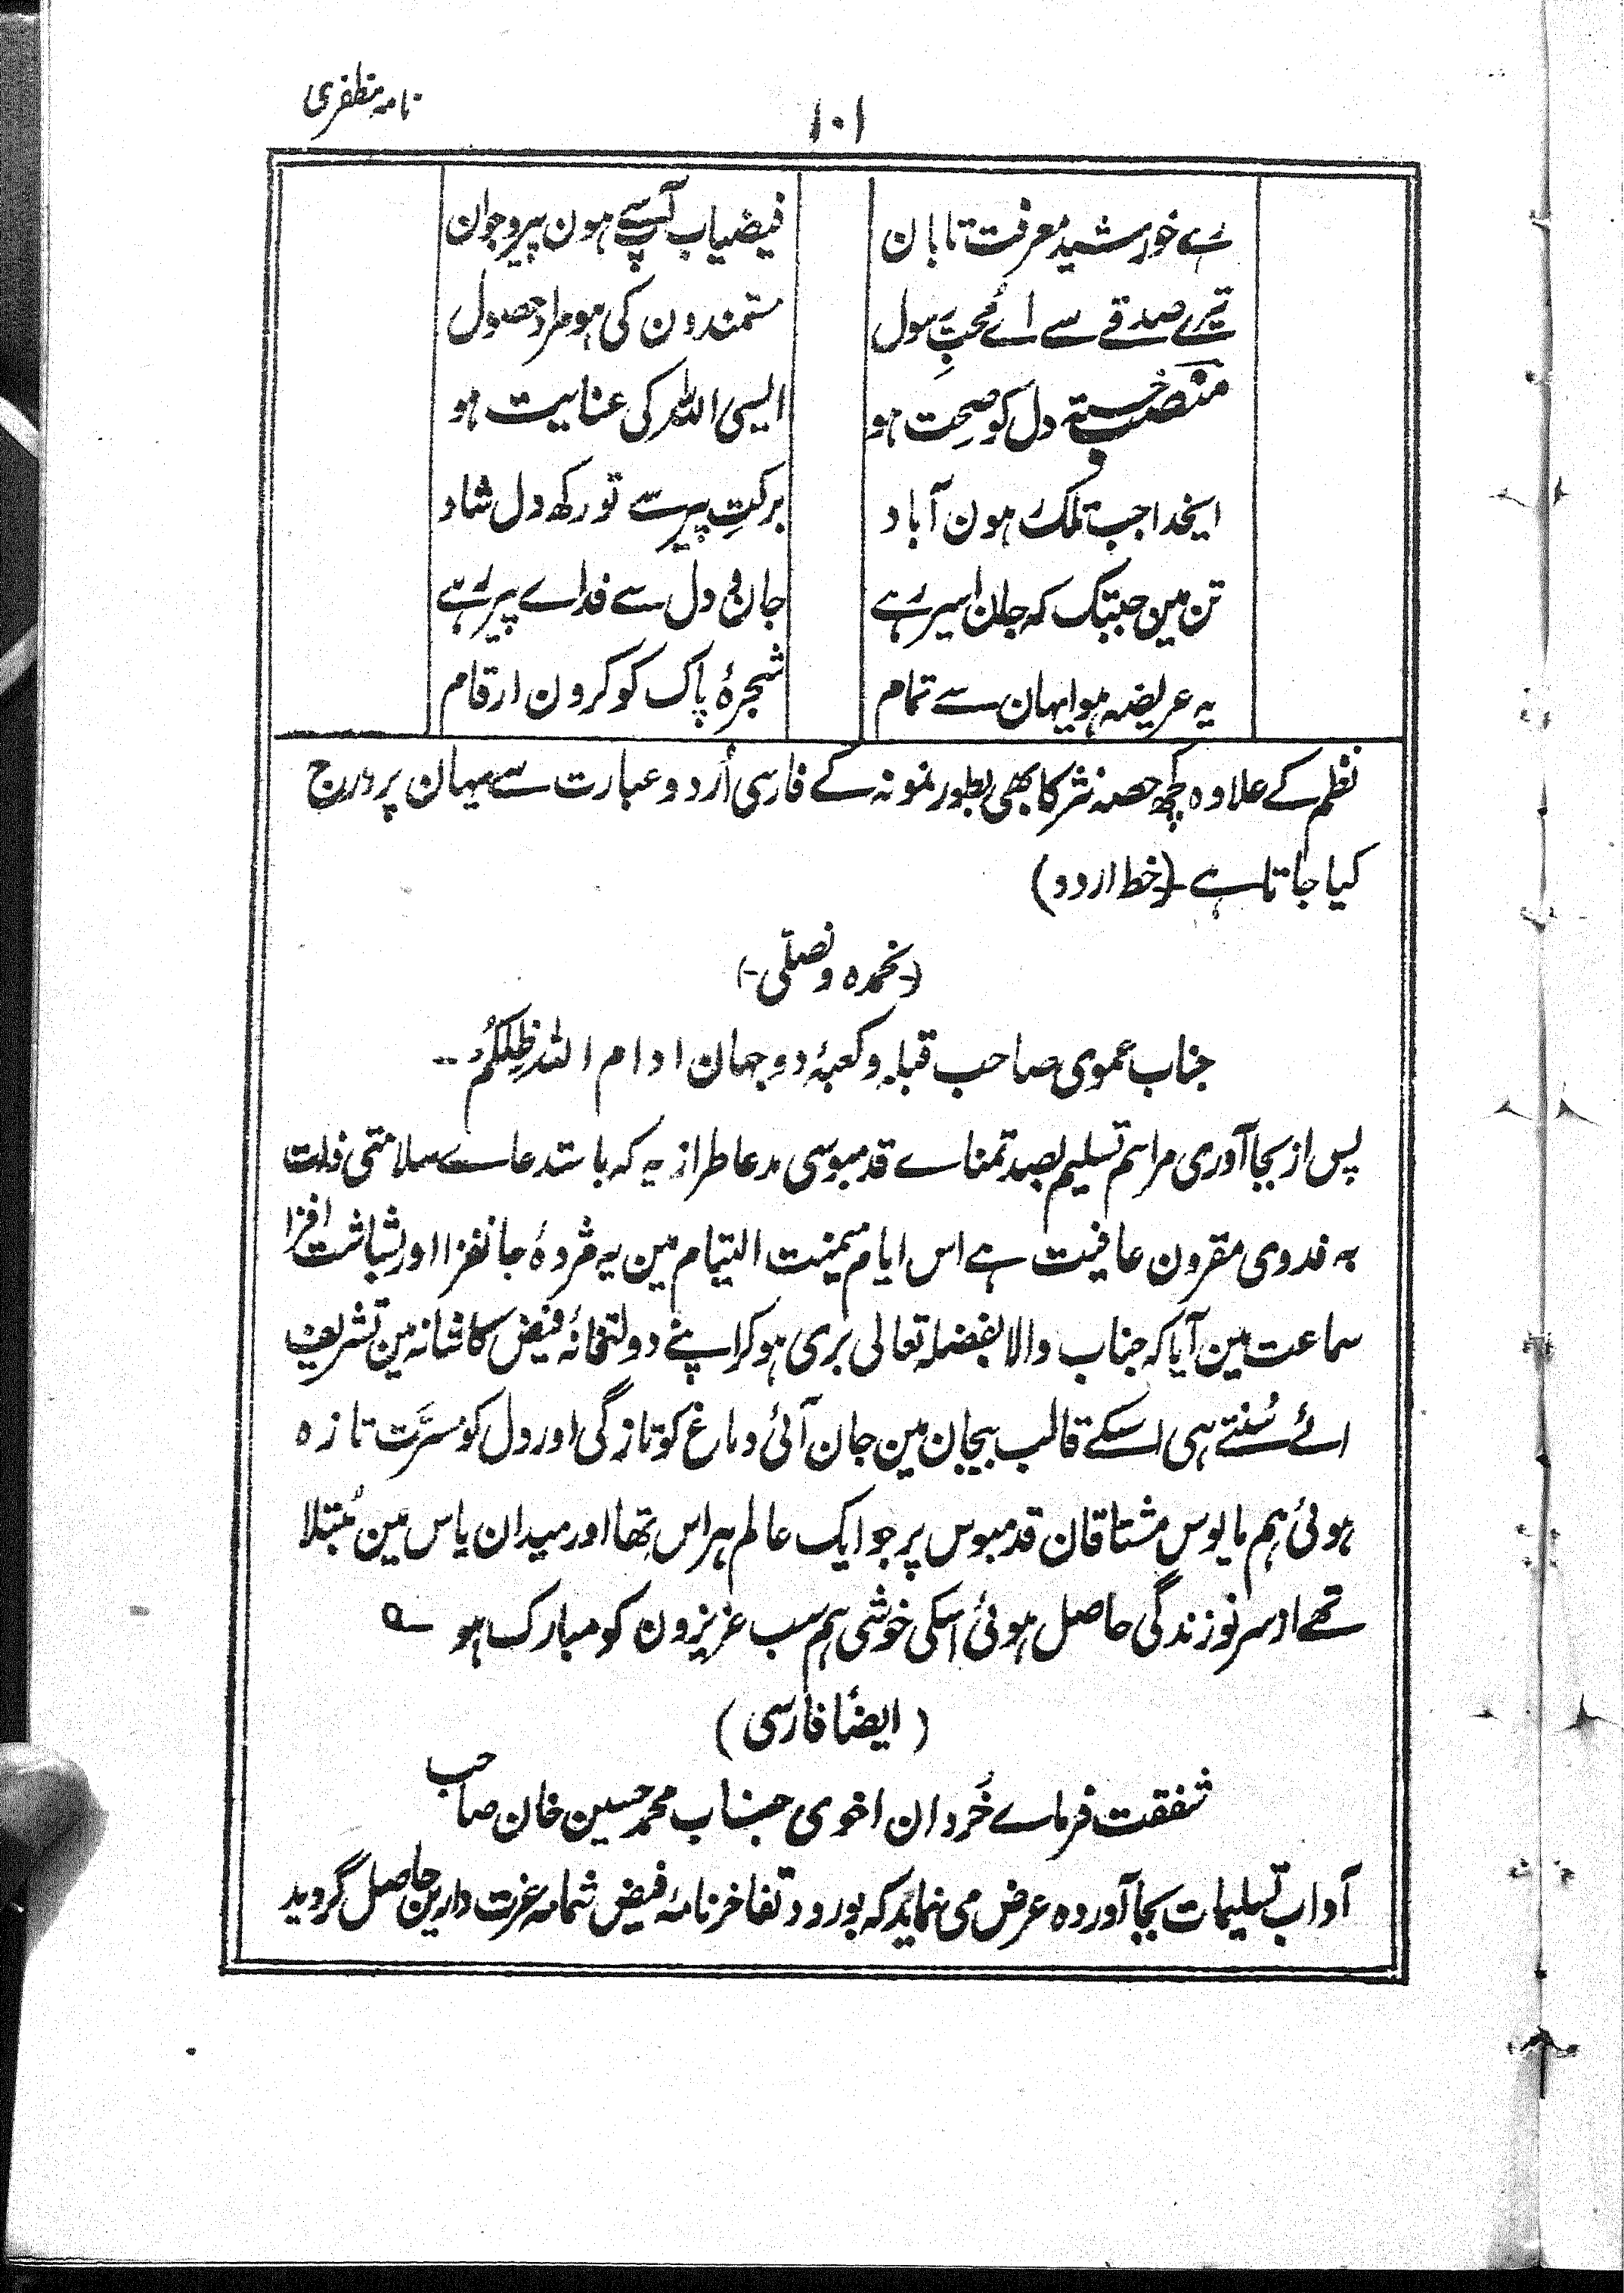 نامہ مظفری
۱۰۱
رہے خورشید معرفت تابان فیضیاب آپسے ہون پیر و جوان
تیرے صدقے سے اے محبِ رسول مستمندون کی ہو مراد حصول
منصبِ خستہ دل کو صحت ہو ایسی اللہ کی عنایت ہو
ایخدا جب تلک ہون آباد برکتِ پیر سے تو رکھ دل شاد
تن مین جبتک کہ جان اسیر رہے جان و دل سے فداے پیر رہے
یہ عریضہ ہوا یہان سے تمام شجرۂ پاک کو کرون ارقام
نظم کے علاوہ کچھ حصہ نثر کا بھی بطور نمونہ کے فارسی اُردو عبارت سے یہان پر درج
کیا جاتا ہے (خط اردو)
(نحمدہ و نصلّی)
جناب عموی صاحب قبلہ و کعبۂ دوجہان ادام اللہ ظِلکُم
پس از بجا آوری مراسم تسلیم بصد تمناے قدمبوسی مدعا طراز یہ کہ باستدعاے سلامتی ذات
بہ فدوی مقرون عافیت ہے اس ایام میمنت التیام مین یہ مژدۂ جانفزا اور بشاشت افزا
سماعت مین آیا کہ جناب والا بفضلہ تعالی بری ہو کر اپنے دولتخانۂ فیض کاشانہ مین تشریف
لائے سُنتے ہی اسکے قالب بیجان مین جان آئی دماغ کو تازگی اور دل کو مسرَّت تازہ
ہوئی ہم مایوس مشتاقان قدمبوس پر جو ایک عالم ہراس تھا اور میدان یاس مین مُبتلا
تھے ازسر نو زندگی حاصل ہوئی اسکی خوشی ہم سب عزیزون کو مبارک ہو
(ایضاً فارسی)
شفقت فرماے خُردان اخوی جناب محمد حسین خان صاحب
آداب تسلیمات بجا آوردہ عرض می نماید کہ بورود تفاخر نامۂ فیض شمامہ عزت دارین حاصل گردید